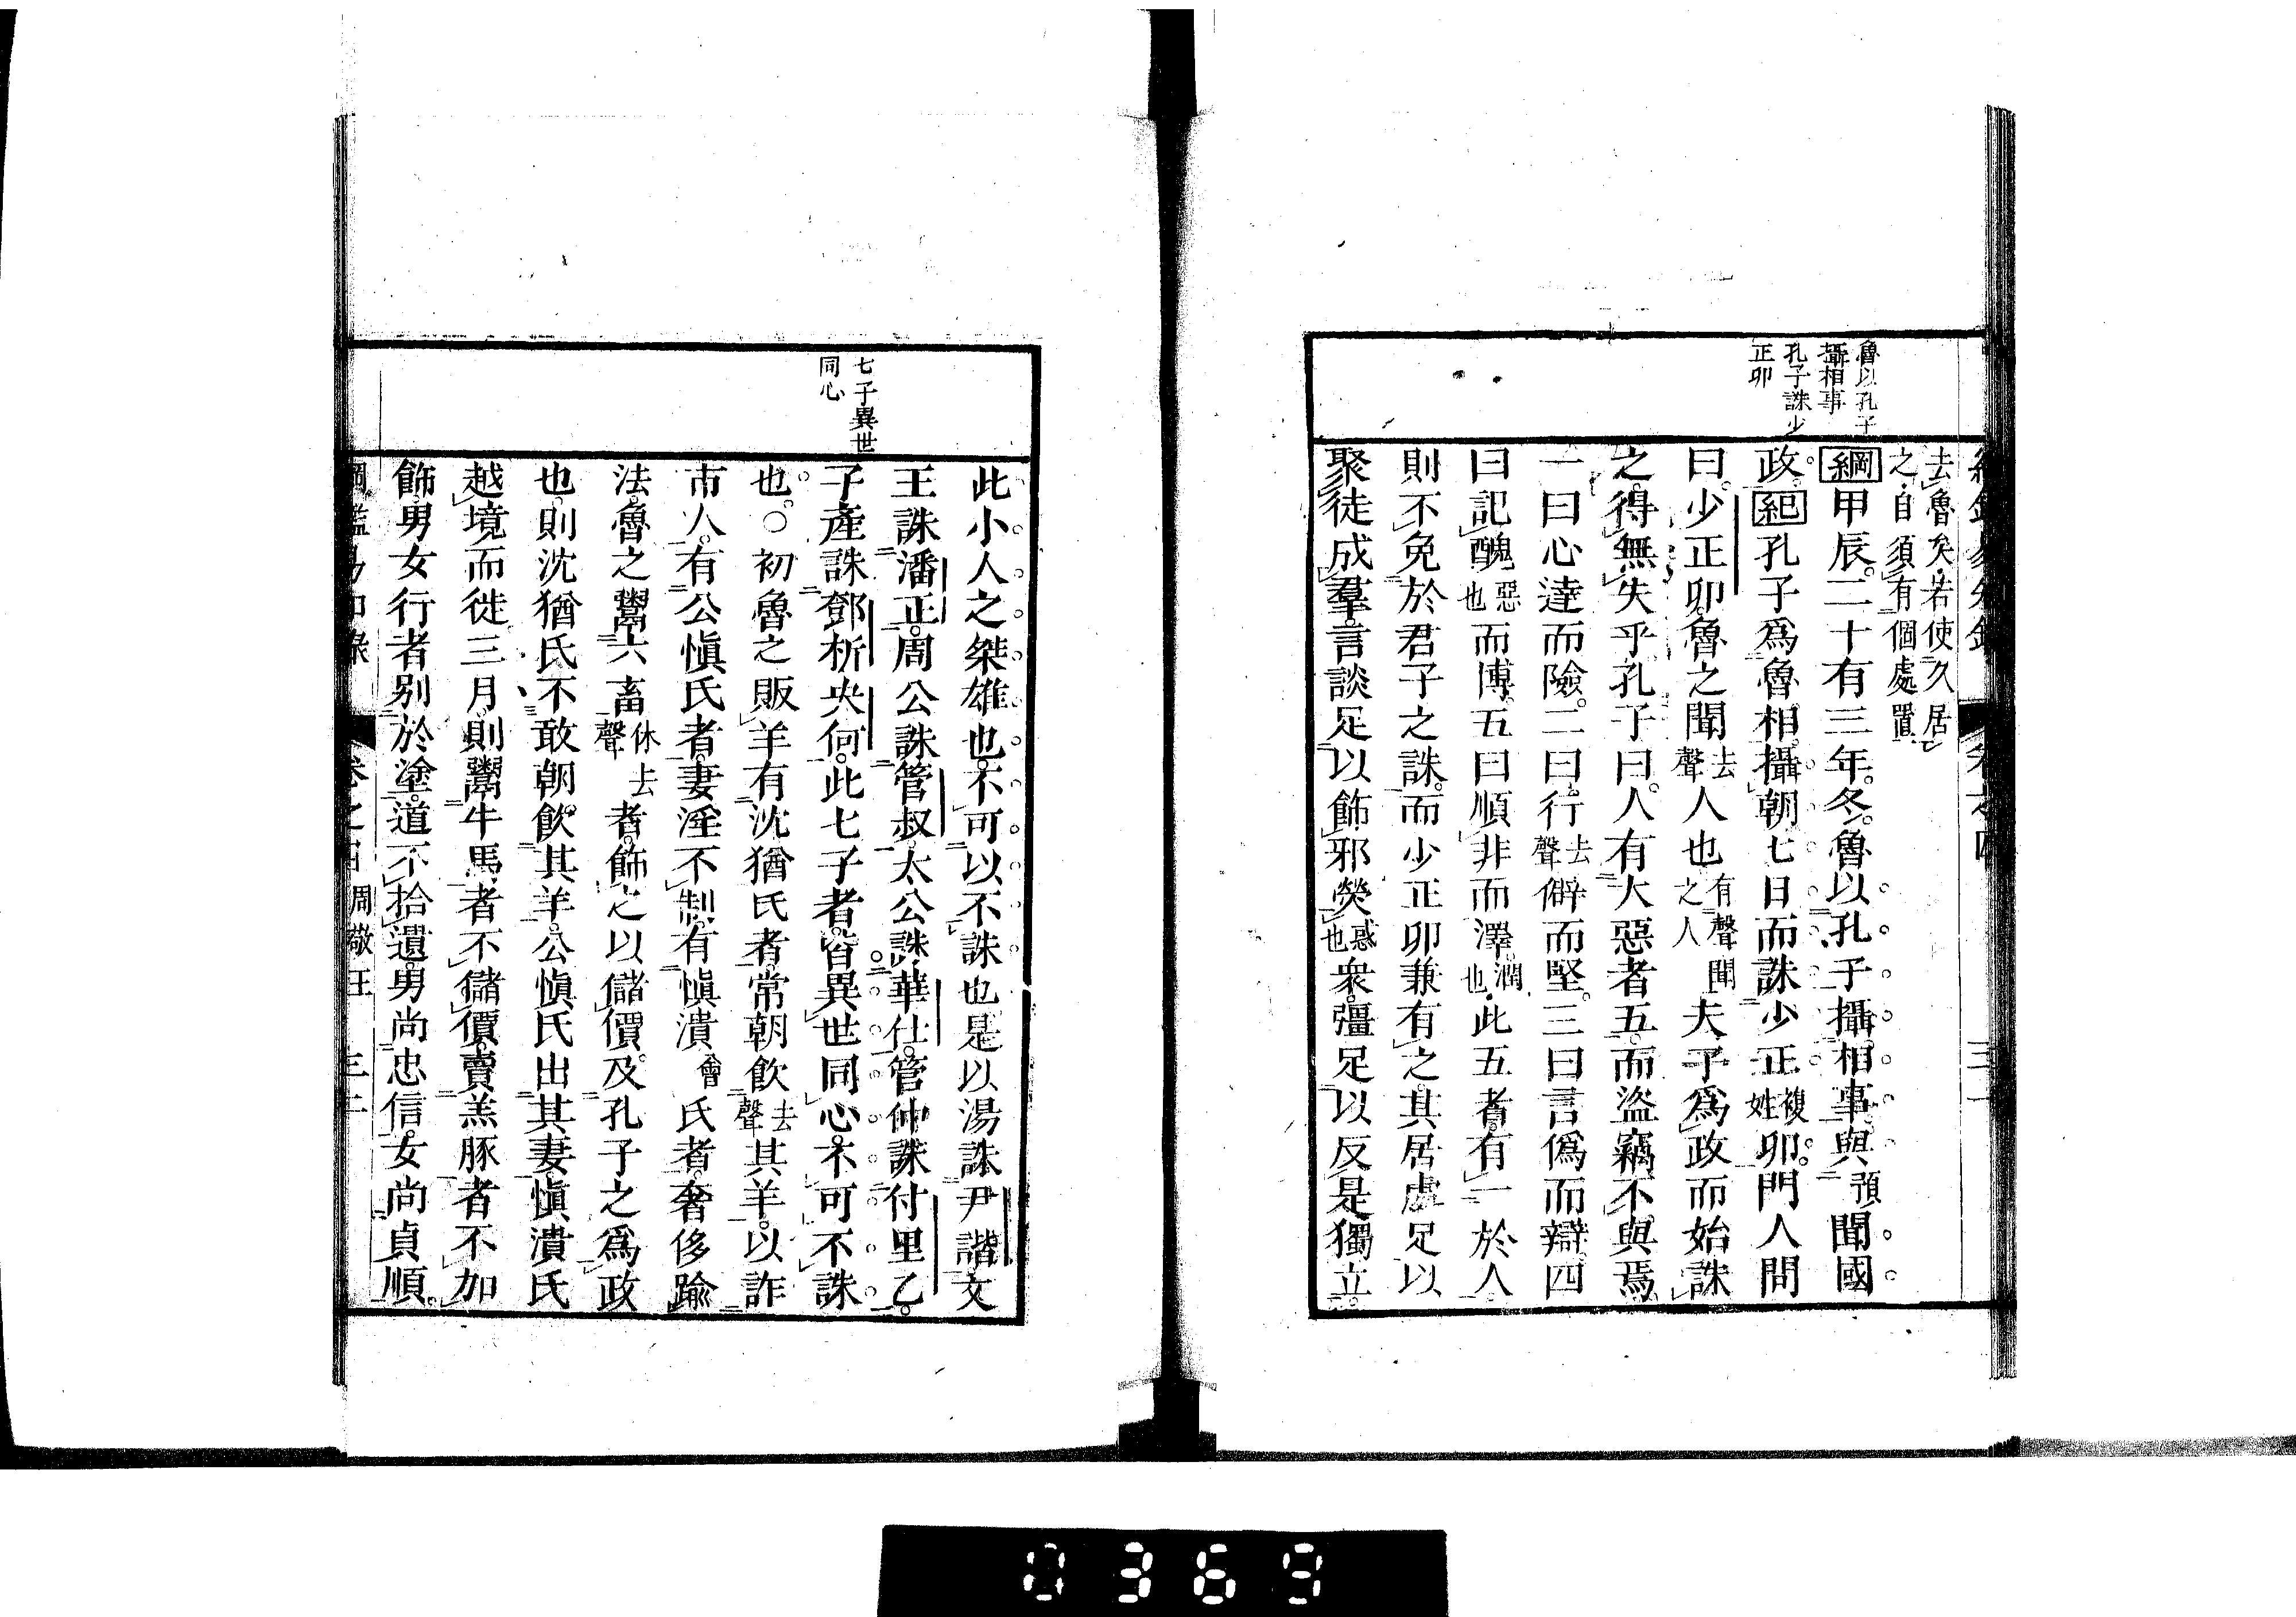 魯以孔子
攝相事
孔子誅少
正卯
去魯矣若使久居
之自須有個處置
綱甲辰二十有三年冬魯以孔子攝相事與預聞國
政紀孔子爲魯相攝朝七日而誅少正複姓卯門人問
曰少正卯魯之聞去聲人也有聲聞之人夫子爲政而始誅
之得無失乎孔子曰人有大惡者五而盜竊不與焉
一曰心達而險二曰行去聲僻而堅三曰言僞而辯四
曰記醜惡也而博五曰順非而澤潤也此五者有一於人
則不免於君子之誅而少正卯兼有之其居處足以
聚徒成羣言談足以飾邪熒惑也衆彊足以反是獨立
七子異世
同心
此小人之桀雄也不可以不誅也是以湯誅尹諧文
王誅潘正周公誅管叔太公誅華仕管仲誅付里乙
子產誅鄧析史何此七子者皆異世同心不可不誅
也○初魯之販羊有沈猶氏者常朝飲去聲其羊以詐
市人有公愼氏者妻淫不制有愼潰會氏者奢侈踰
法魯之鬻六畜休去聲者飾之以儲價及孔子之爲政
也則沈猶氏不敢朝飲其羊公愼氏出其妻愼潰氏
越境而徙三月則鬻牛馬者不儲價賣羔豚者不加
飾男女行者別於塗道不拾遺男尚忠信女尚貞順
卷之四 周敬王 三十二